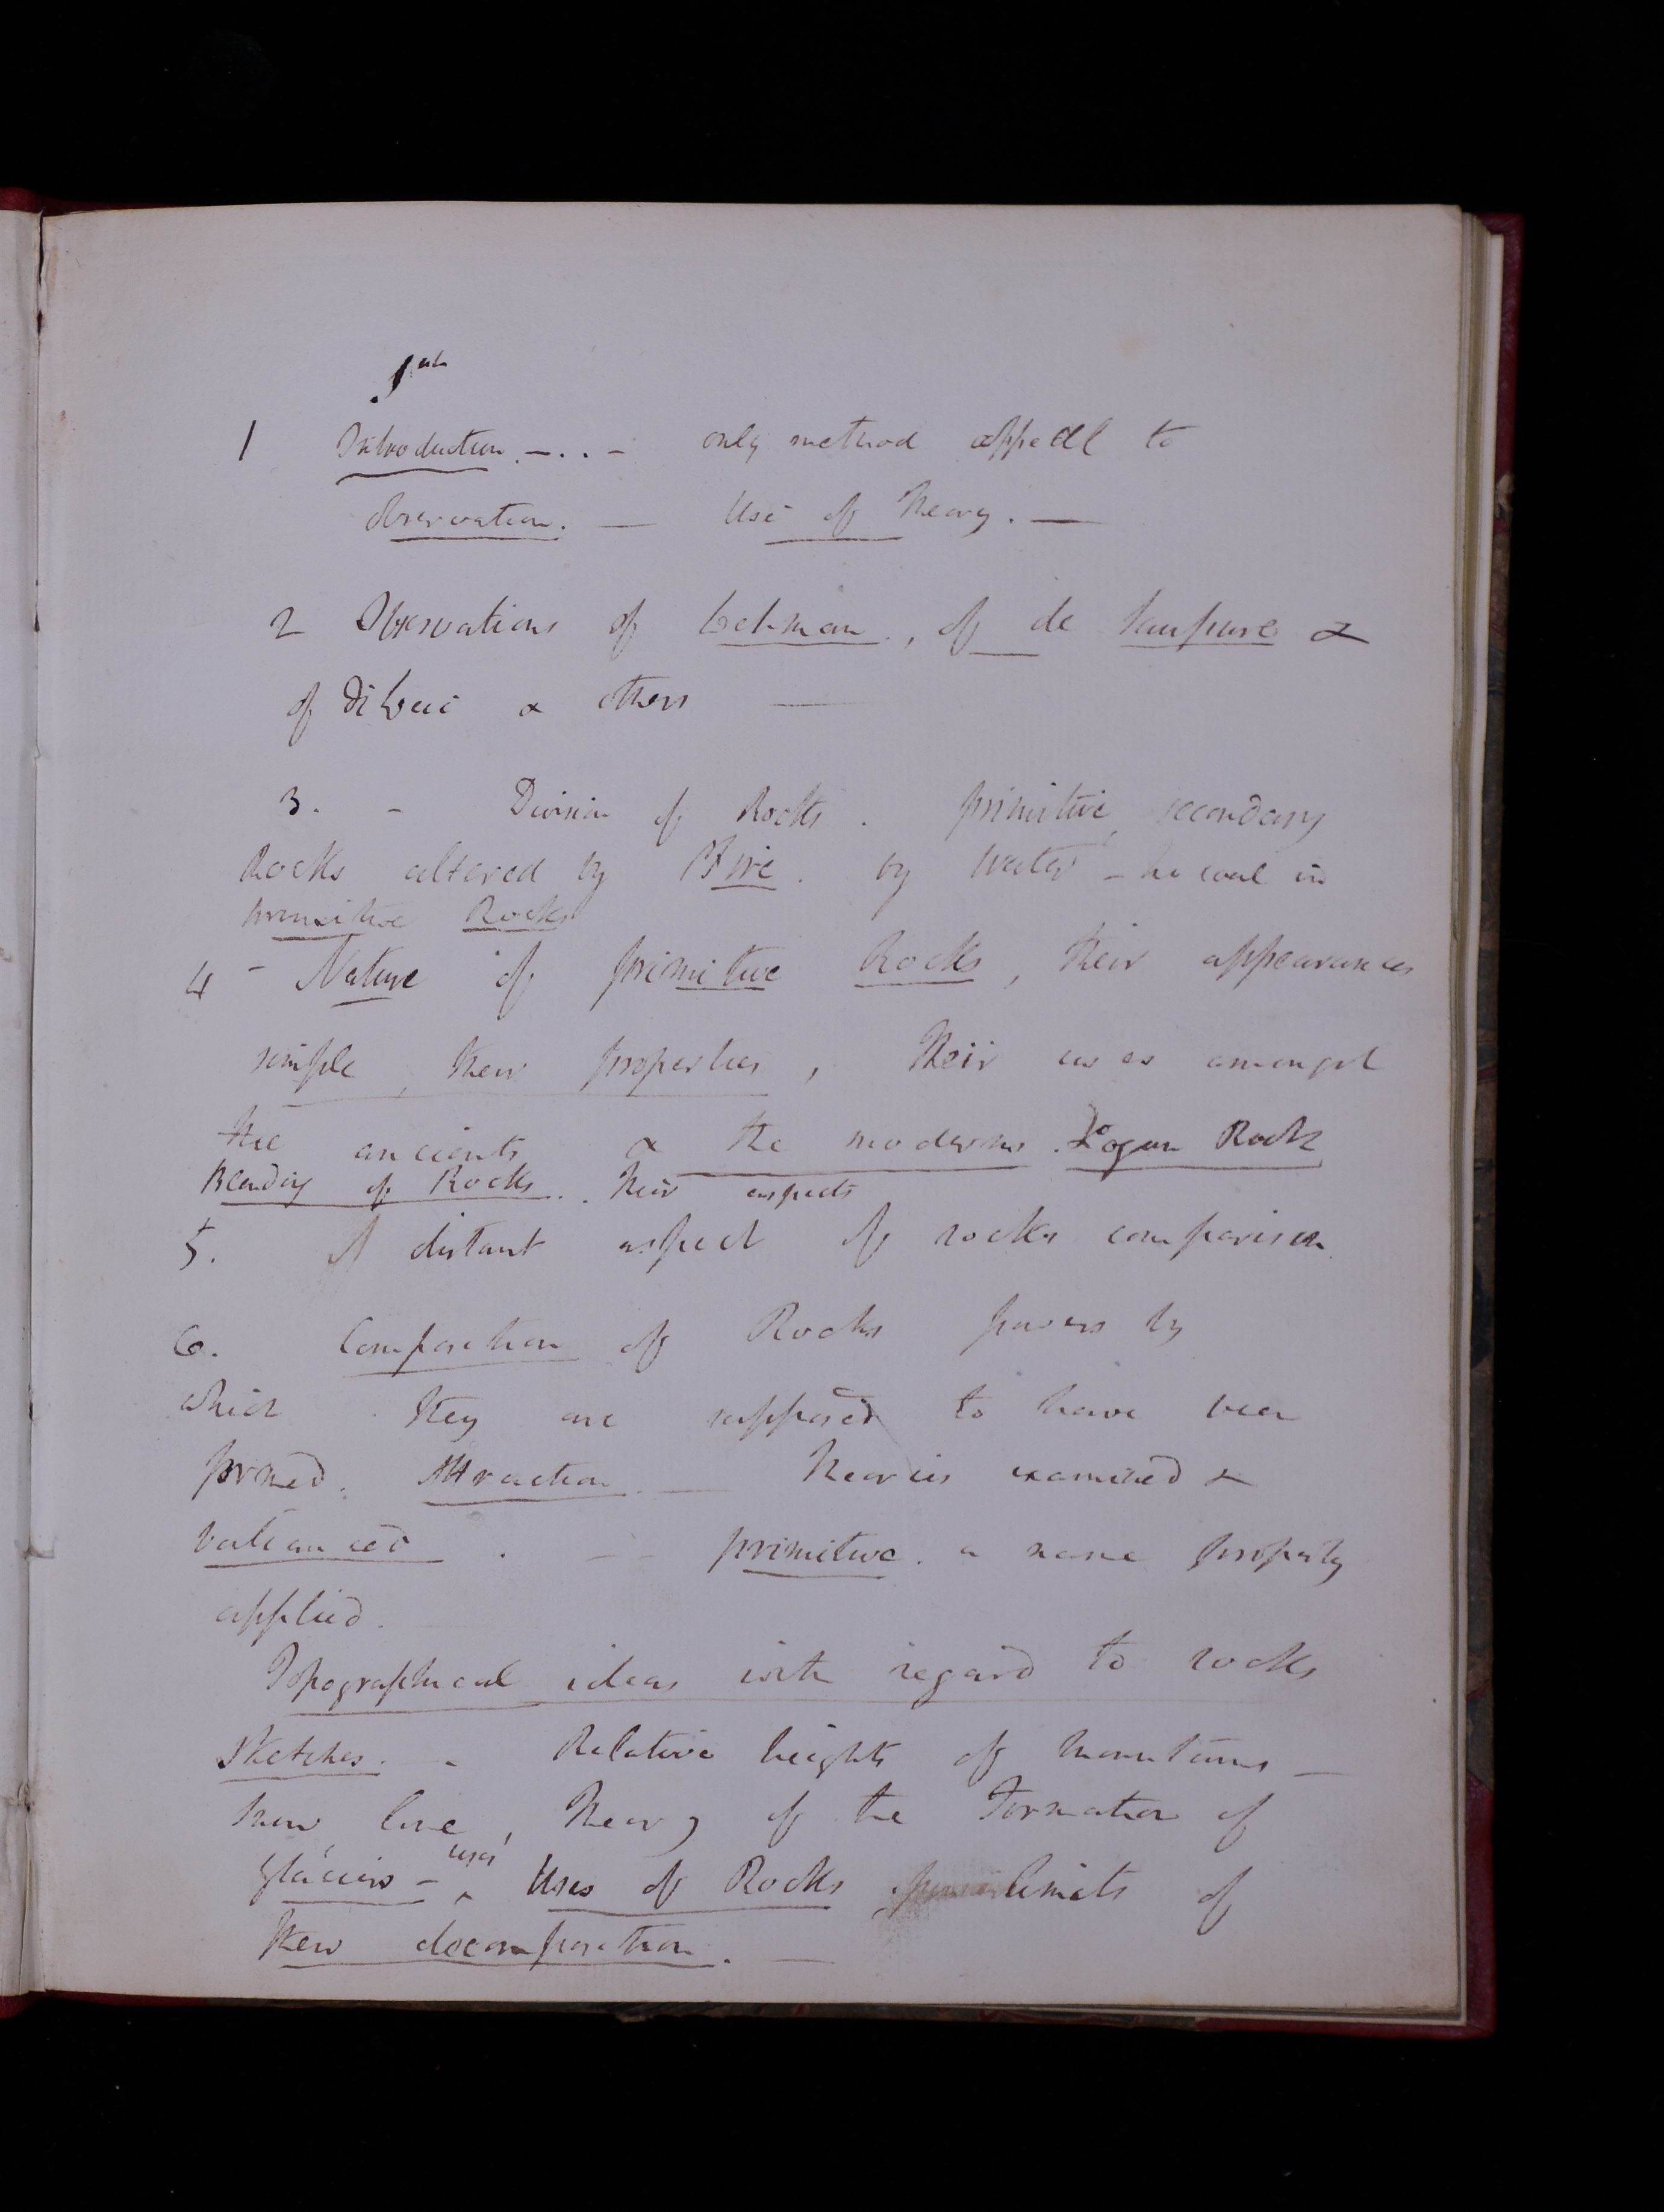 1
Introduction. - . . - only method appeal to
observation. — Use of Theory. —
2 Observations of Lehman, of de Saussure &
of De Luc & others —
3. - Division of Rocks. primitive, secondary
Rocks altered by Fire. by Water - no coal in
primitive Rocks
4 - Nature of primitive Rocks, their appearances
simple, their properties, their uses amongst
the ancients & the moderns. Logan Rock
Blending of Rocks. Their aspects
5. A distant aspect of rocks comparison.
6. Composition of Rocks powers by
which they are supposed to have been
formed. Attraction. — Theories examined &
balanced. - - primitive. a name properly
applied.
Topographical ideas with regard to rocks
Sketches. - Relative heights of Mountains —
snow line, Theory of the Formation of
Glaciers - uses
^ Uses of Rocks. limits of
their decomposition. —